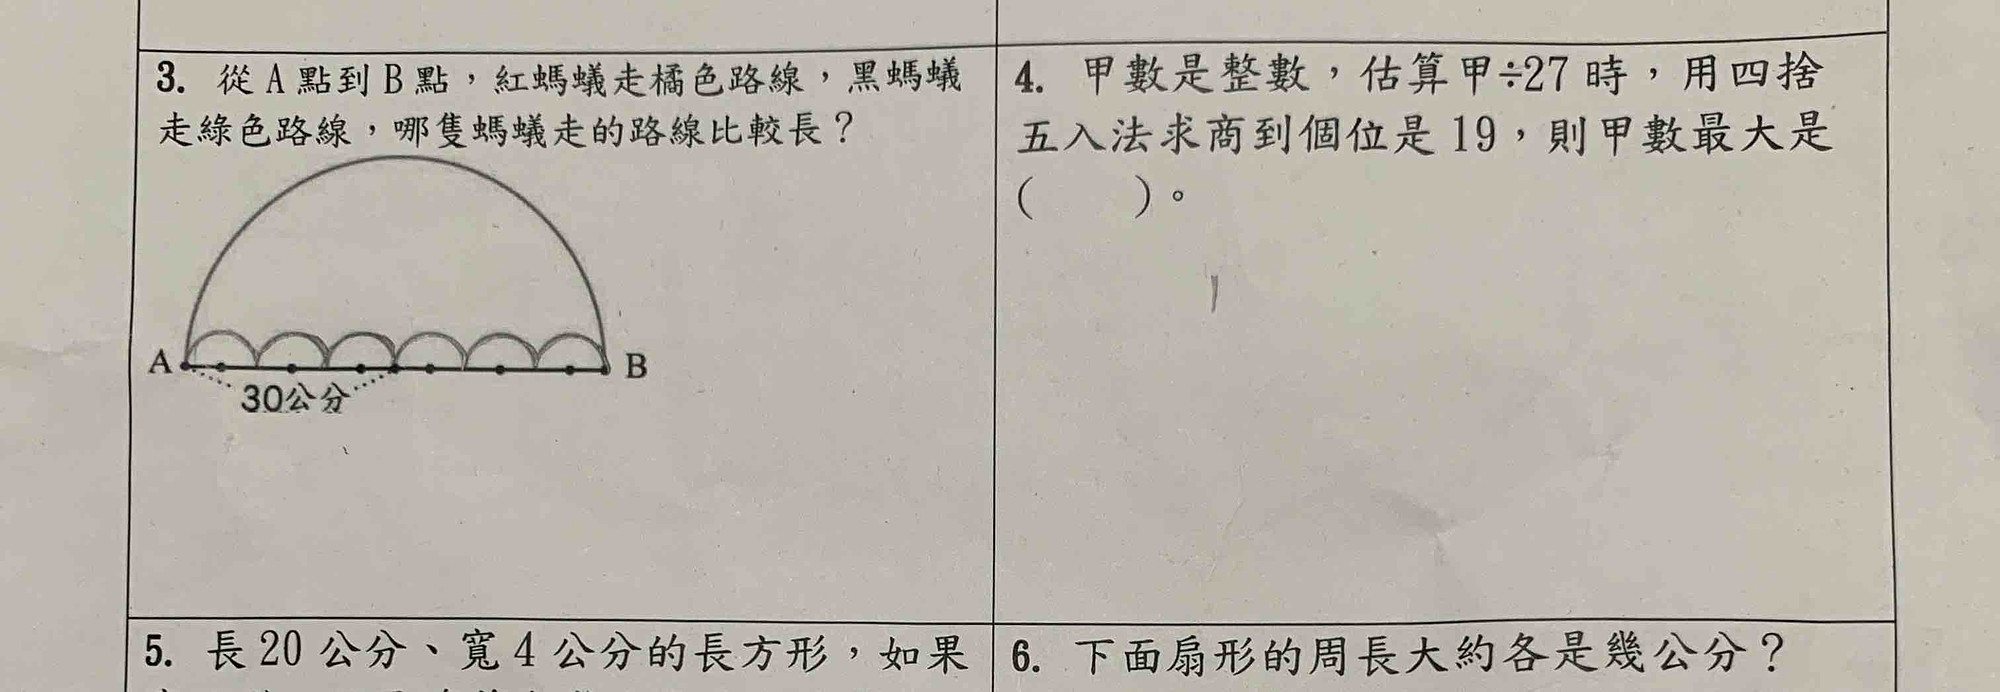 3. 從 A 點到 B 點，紅螞蟻走橘色路線，黑螞蟻
走綠色路線，哪隻螞蟻走的路線比較長？
A
B
30公分
4. 甲數是整數，估算甲÷27 時，用四捨
五入法求商到個位是 19，則甲數最大是
(　　)。
5. 長 20 公分、寬 4 公分的長方形，如果
6. 下面扇形的周長大約各是幾公分？